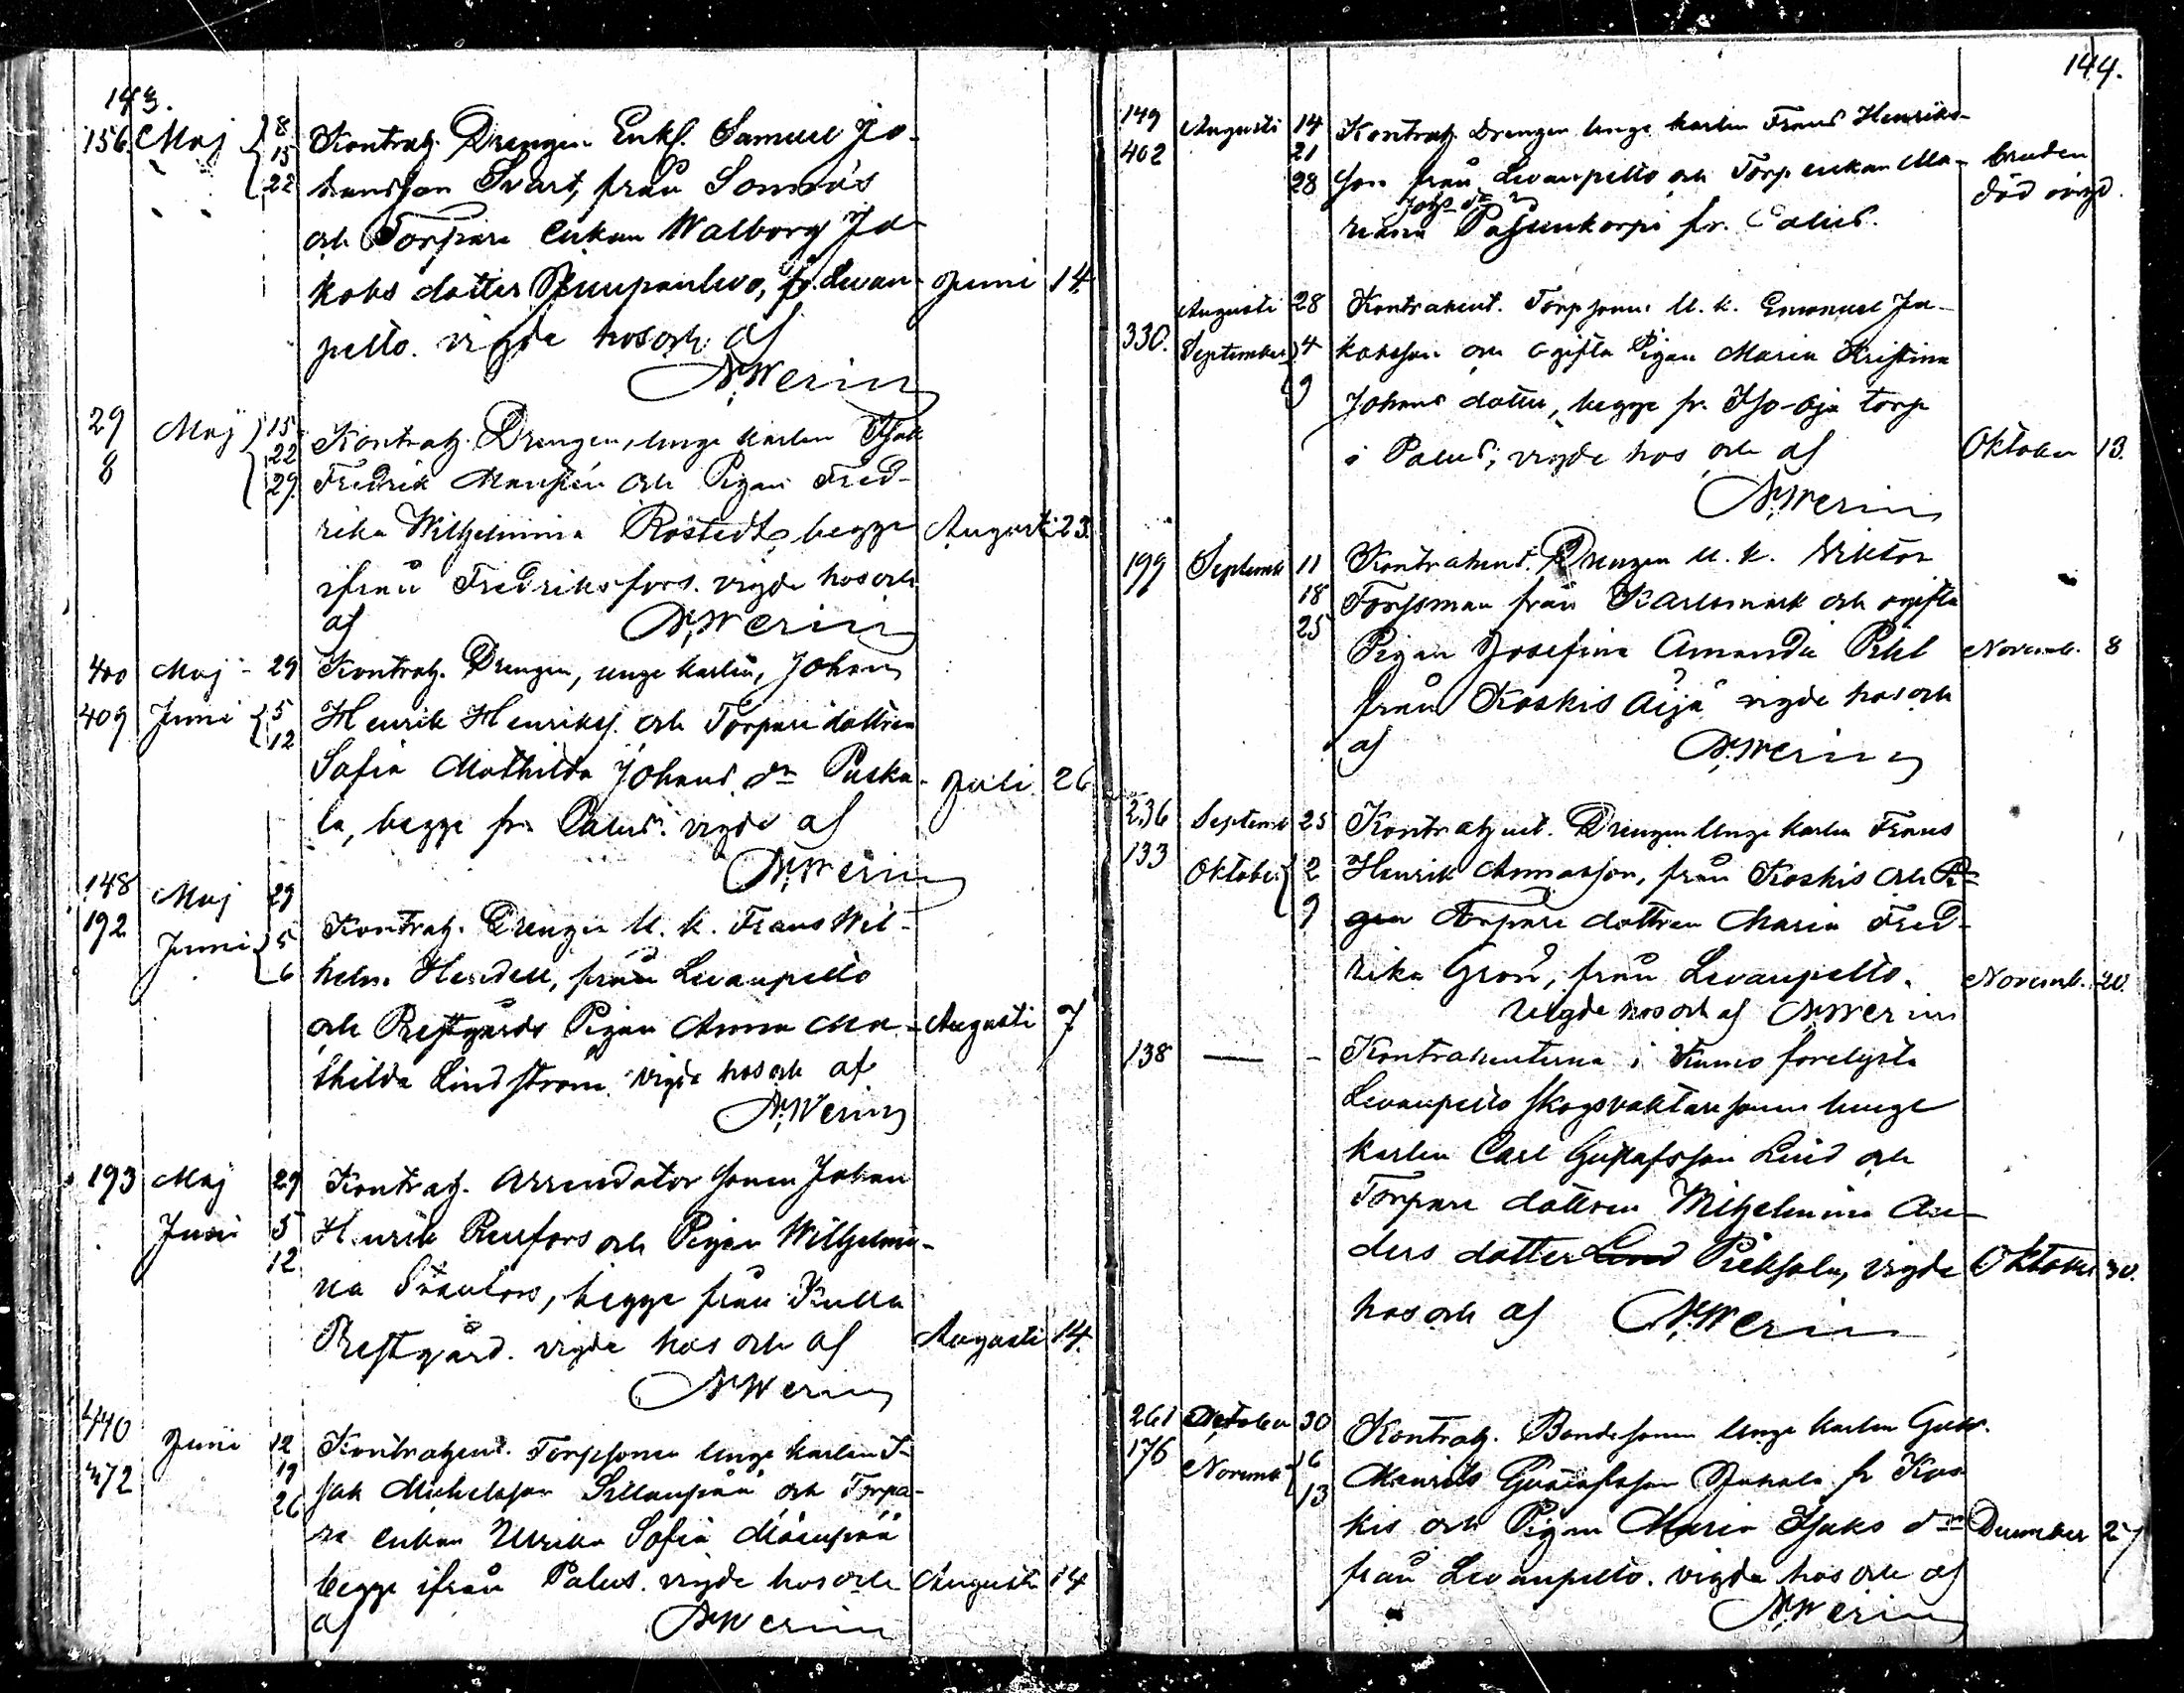 143.
156. Maj 8 Kontrah. Drengen Enkl. Samuel Jo-
15 hansson Svart, från Sonnäs
22 och Torpare enkan Walborg Ja-
kobs dotter, fr. Levan- Juni 14.
pelto. vigde hos och af
N. Werin
29 Maj 15 Kontrah. Drengen, unge karlen Isak
8 22 Fredrik och Pigan Fred-
29. rika Wilhelmina Rostedt, begge Augusti 23.
ifrån Fredriksfors. vigde hos och
af N. Werin
400 Maj 29 Kontrah. Drengen, unge karlen, Johan
409 Juni 5 Henrik Henrikss. och Torpare dottren
12 Sofia Mathilda Johans dr Puska- Juli 26
la, begge fr. Palus. vigde af
N. Werin
148 Maj 29
192 Juni 5 Kontrah. Drengen U. k. Frans Wil-
6 helm Hendell, från Levanpelto
och Prestgårds Pigan Anna Ma- Augusti 7
thilda Lindström. vigde hos och af
N. Werin
193 Maj 29 Kontrah. Arrendator sonen Johan
Juni 5 Henrik Renfors och Pigan Wilhelmi-
12 na, begge från Kulla
Prestgård. vigde hos och af Augusti 14.
N. Werin
440 Juni 12 Kontrahent. Torpsonen unge karlen I-
472 19 sak Michelsson Sillanpää och Torpa-
26 re enkan Ulrika Sofia Mäenpää
begge ifrån Palus. vigde hos och Augusti 14
af N. Werin
144.
149 Augusti 14 Kontrah. Drengen unge karlen Frans Henriks-
402 21 son från Levanpelto och Torp enkan Ma- bruden
28 Johs dr död ovigd.
riana Pasunkorpi fr. Palus.
Augusti 28 Kontrahent. Torpsonen U. k. Emanuel Ja-
330. September 4 kobsson och ogifta Pigan Maria Kristina
9 Johans dotter, begge fr. Iso-Oja torp
i Palus; vigde hos och af Oktober 13.
N. Werin
199 Septemb 11 Kontrahent. Drengen U. k. Viktor
18 Forssman från Karlsmark och ogifta
25 Pigan Josefina Amanda Pihl Novemb. 8
från Koskis Äijä vigde hos och
af N. Werin
236 Septemb 25 Kontrahent. Drengen Unge karlen Frans
133 Oktober 2 Henrik Annasson, från Koskis och Pi-
9 gan Torpare dottren Maria Fred-
rika Grön, från Levanpelto. Novemb. 20.
Vigde hos och af N. Werin
138 — - Kontrahenterna i Kumo förelysta
Levanpelto skogsvaktare sonen Unge
karlen Carl Gustafsson Lind och
Torpare dottren Wilhelmina An-
ders dotter Lind Pieksala, vigde Oktober 30.
hos och af N. Werin
261 Oktober 30 Kontrah. Bondesonen Unge karlen Gust.
176 Novemb 6 Maurits Gustafsson Juhala fr Kos-
13 kis och Pigan Maria Isaks dr December 27
från Levanpelto. vigde hos och af
N. Werin